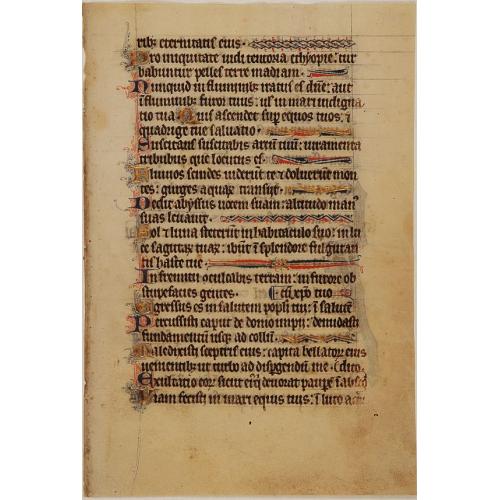 ribz eternitatis eius.
Pro iniquitate uidi tentoria ethyopie: tur
babuntur pelles terre madian.
Nunquid in fluminibz iratus es dne: aut
i fluminibz furor tuus: ul in mari indigna
tio tua Qui ascendes sup equos tuos: &
quadrige tue saluatio.
Suscitans suscitabis arcu tuu: iuramenta
tribubus que locutus es.
Fluuios scindes uiderut te & doluerut mon
tes: gurges aquaz transiit.
Dedit abyssus uocem suam: altitudo man
suas leuauit.
Sol & luna steterut in habitaculo suo: in lu
ce sagittaz tuaz: ibut i splendore fulguran
tis haste tue.
In fremitu oculcabis terram: in furore ob
stupefacies gentes. cu xpo tuo
Egressus es in salutem popli tui: i salute
Percussisti caput de domo impii: denudasti
fundamentu usqz ad collu.
Maledixisti sceptris eius: capita bellatoz eius
uenientibz ut turbo ad dispgendu me.
Exultatio eoz sicut eiq deuorat paupe i abscod
Viam fecisti in mari equis tuis: i luto aqu